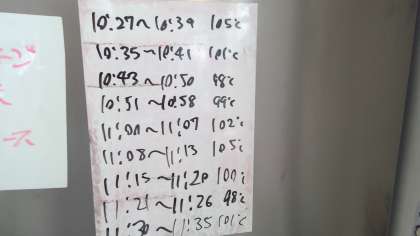 10:27～10:34 105℃
10:35～10:41 101℃
10:43～10:50 98℃
10:51～10:58 99℃
11:00～11:07 102℃
11:08～11:13 105℃
11:15～11:20 100℃
11:21～11:26 98℃
11:30～11:35 101℃
ース